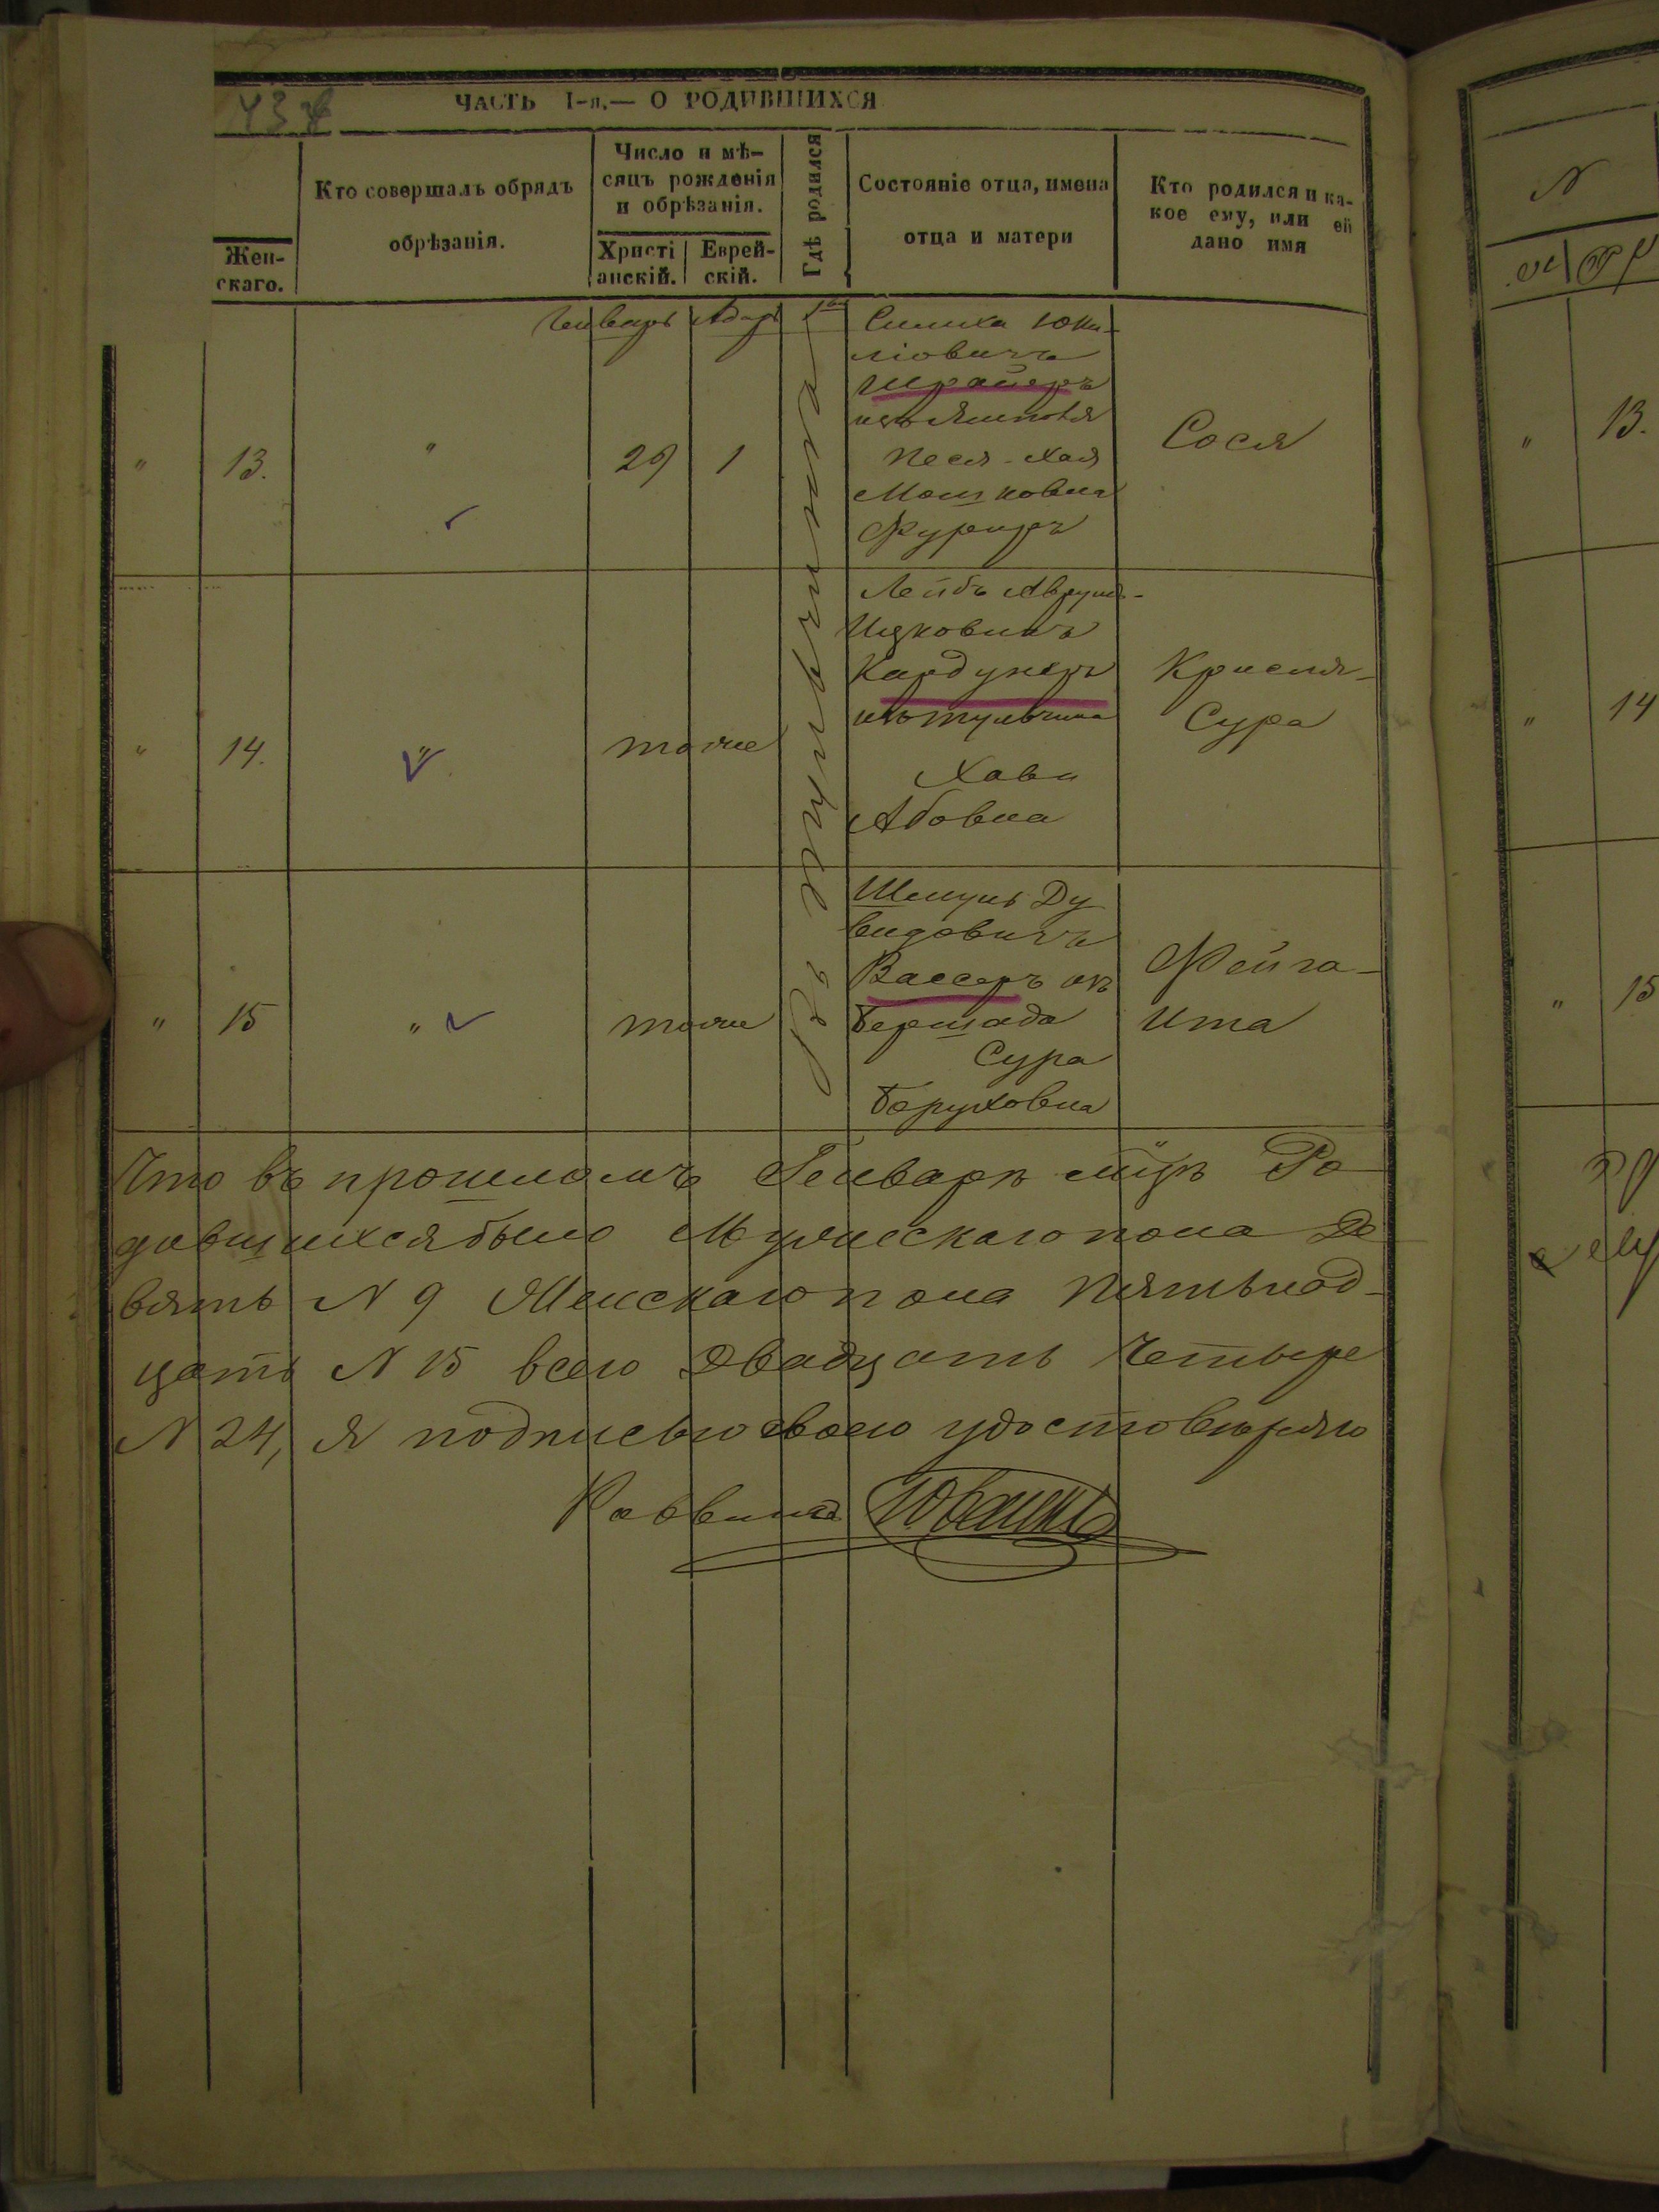 ЧАСТЬ I-я.— О РОДИВШИХСЯ
Жен-
скаго.
Кто совершалъ обрядъ
обрѣзанія.
Число и мѣ-
сяцъ рожденія
и обрѣзанія.
Христі
анскій.
Еврей-
скій.
Гдѣ родился
Состояніе отца, имена
отца и матери
Кто родился и ка-
кое ему, или ей
дано имя
Генварь Адаръ 1й
Въ Тульчинѣ
" 13. " 29 1
Симха Юки-
ліовичъ
Шрайеръ
изъ Ямполя
Песя-Хая
Мошковна
Сося
" 14. " тоже
Лейбъ Аврумъ-
Ицковичъ
Кардунеръ
изъ Тульчина
Хава
Абовна
Крисля-
Сура
" 15 " тоже
Шмуль Ду
видовичъ
Вассеръ изъ
Бершада
Сура
Боруховна
Фейга-
Ита
Что въ прошломъ Генварѣ мцѣ Ро
дившихся было Мужескаго пола Де
вять N 9 Женскаго пола Пятьнад-
цать N 15 всего Двадцать Четыре
N 24, Я подписью своею удостовѣряю
Раввинъ
N
13.
" 14
" 15